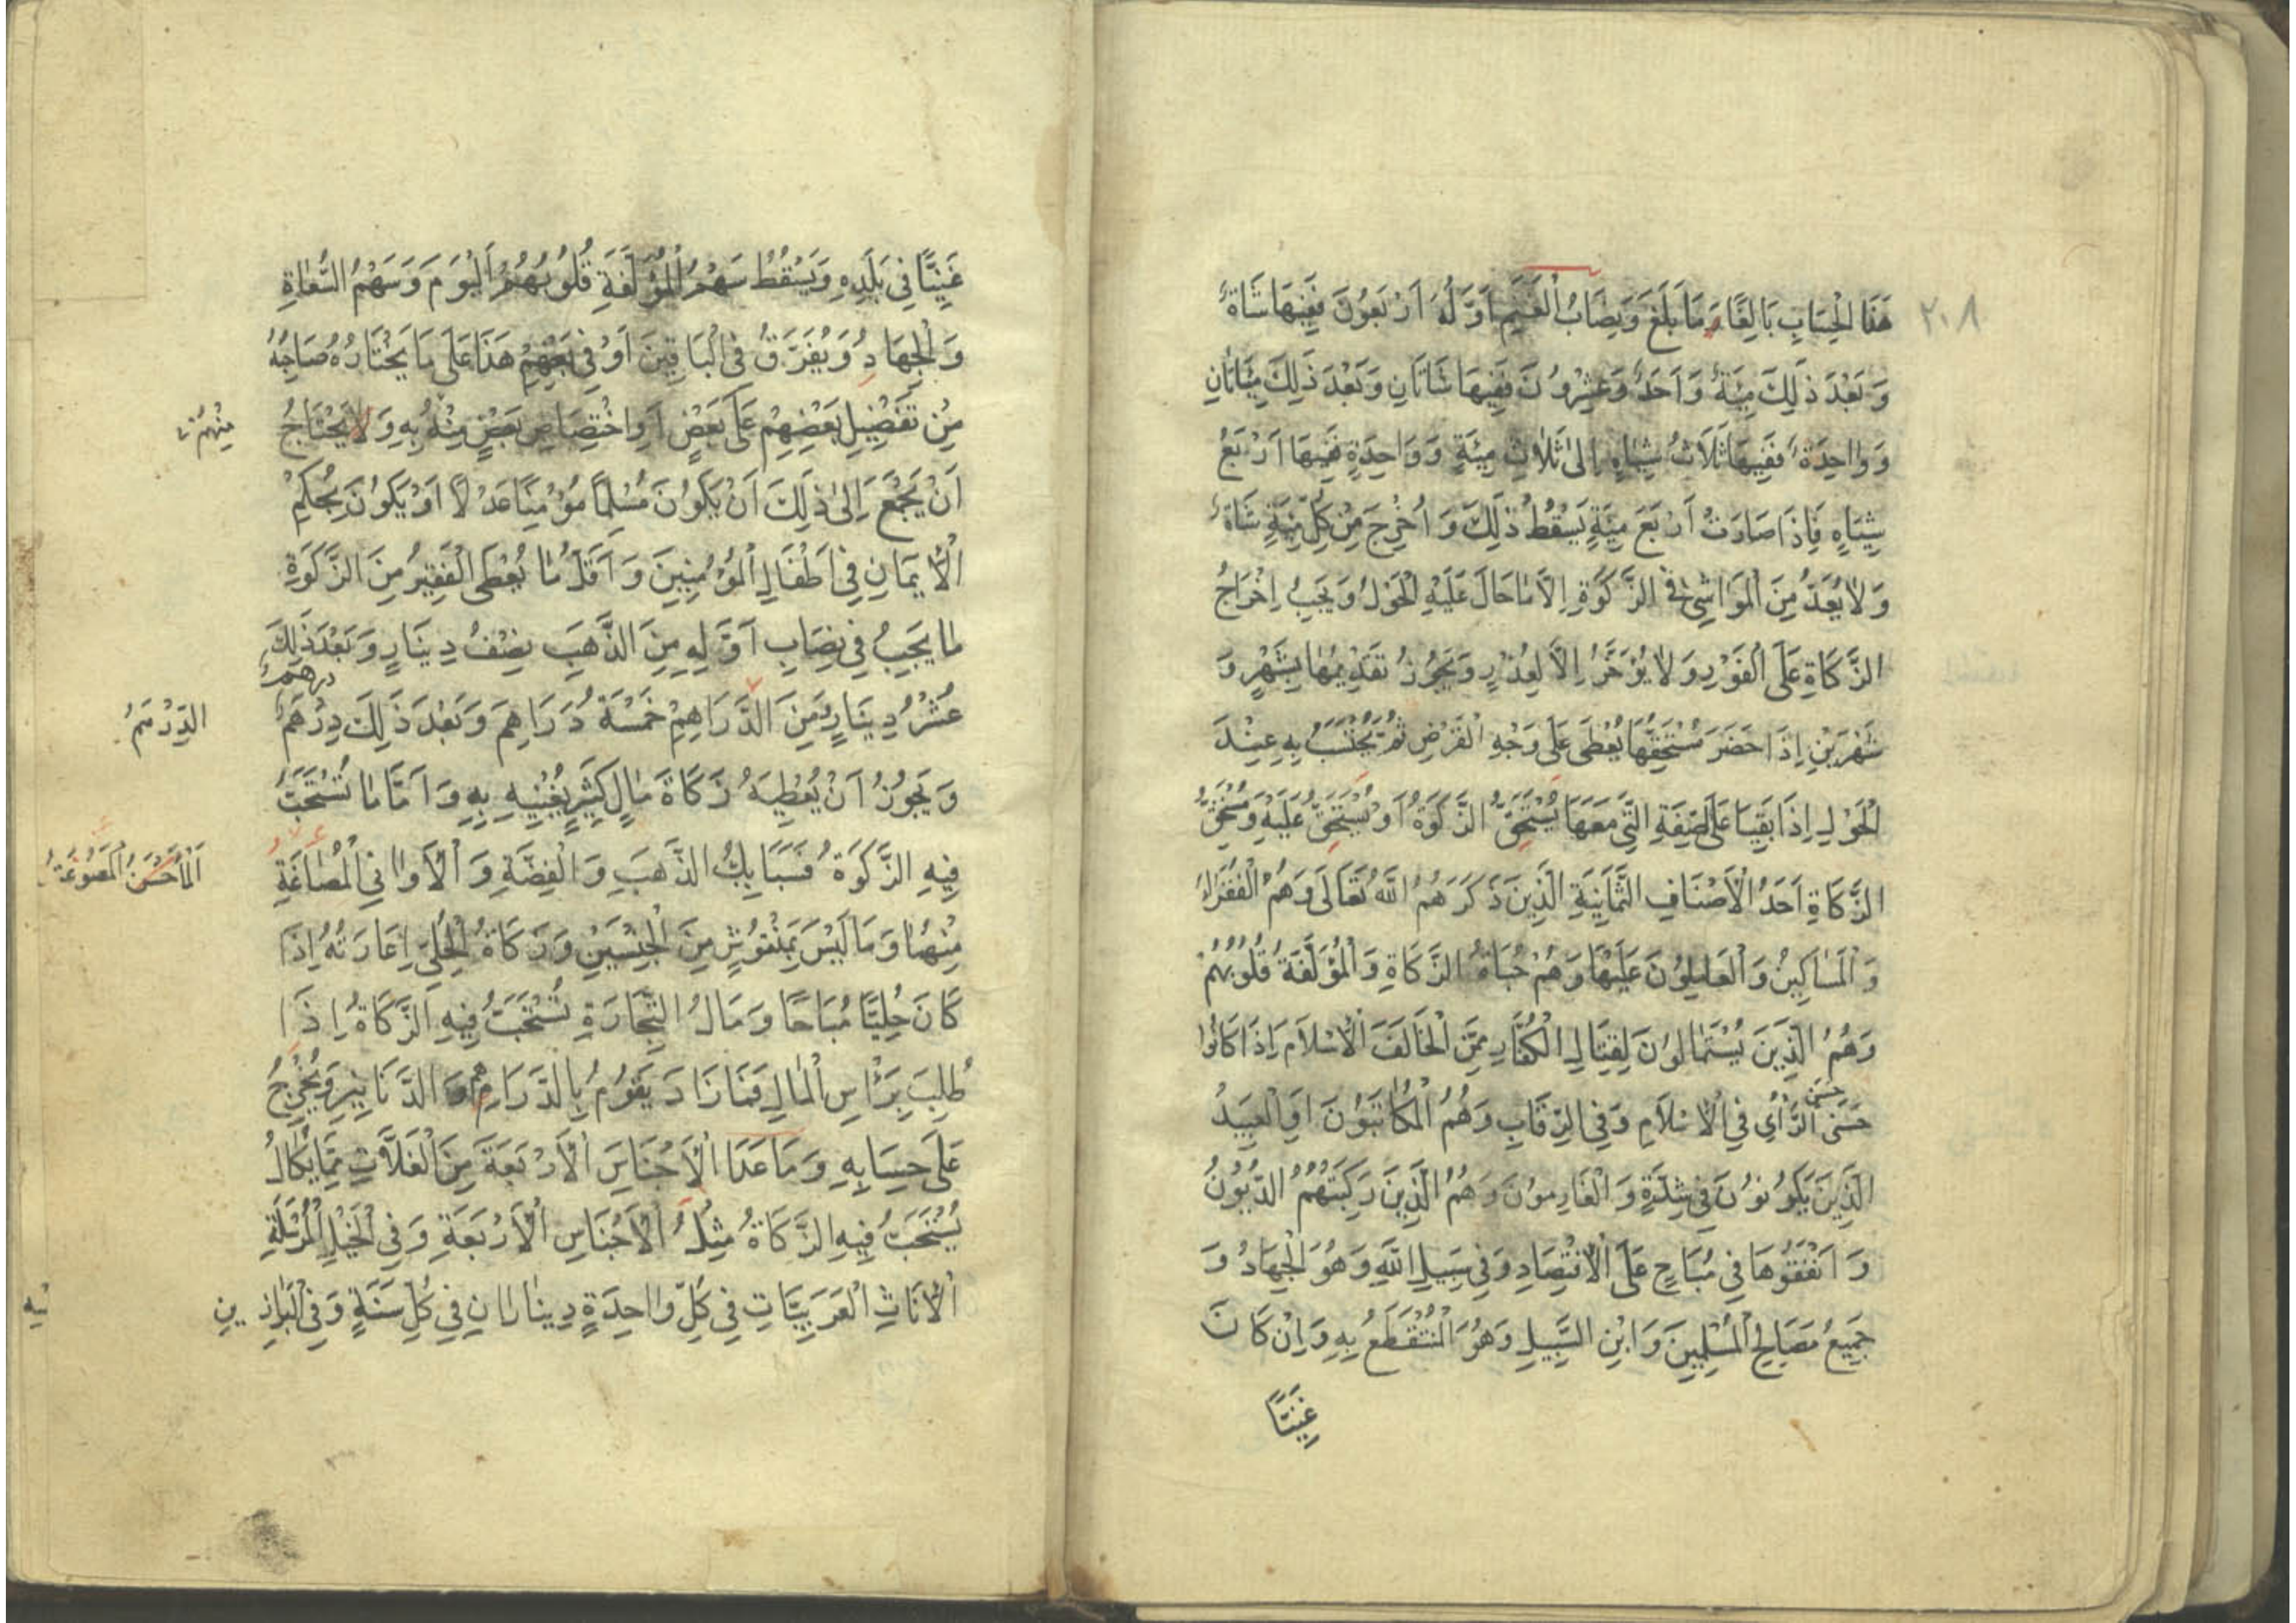 ٢٠٨
هَذَا الْحِسَابِ بَالِغًا مَا بَلَغَ وَنِصَابُ الْغَنَمِ اَوَّلُهُ اَرْبَعُونَ فَفِيهَا شَاةٌ
وَبَعْدَ ذَلِكَ مِئَةٌ وَاَحَدٌ وَعِشْرُونَ فَفِيهَا شَاتَانِ وَبَعْدَ ذَلِكَ مِئَتَانِ
وَوَاحِدَةٌ فَفِيهَا ثَلَاثُ شِيَاهٍ اِلَى ثَلَاثِ مِئَةٍ وَوَاحِدَةٍ فَفِيهَا اَرْبَعُ
شِيَاهٍ فَاِذَا صَارَتْ اَرْبَعَ مِئَةٍ يَسْقُطُ ذَلِكَ وَاُخْرِجَ مِنْ كُلِّ مِئَةٍ شَاةٌ
وَلَا يُعَدُّ مِنَ الْمَوَاشِي فِي الزَّكَوةِ اِلَّا مَا حَالَ عَلَيْهِ الْحَوْلُ وَيَجِبُ اِخْرَاجُ
الزَّكَاةِ عَلَى الْفَوْرِ وَلَا يُؤَخَّرُ اِلَّا لِعُذْرٍ وَيَجُوزُ تَقْدِيمُهَا بِشَهْرٍ وَ
شَهْرَيْنِ اِذَا حَضَرَ مُسْتَحِقُّهَا يُعْطَى عَلَى وَجْهِ الْقَرْضِ ثُمَّ يُحْتَسَبُ بِهِ عِنْدَ
الْحَوْلِ اِذَا بَقِيَا عَلَى الصِّفَةِ الَّتِي مَعَهَا يُسْتَحِقُّ الزَّكَوةُ اَوْ يُسْتَحِقُّ عَلَيْهِ وَمُسْتَحِقُّ
الزَّكَاةِ اَحَدُ الْاَصْنَافِ الثَّمَانِيَةِ الَّذِينَ ذَكَرَهُمُ اللهُ تَعَالَى وَهُمُ الْفُقَرَاءُ
وَالْمَسَاكِينُ وَالْعَامِلُونَ عَلَيْهَا وَهُمْ جُبَاةُ الزَّكَاةِ وَالْمُؤَلَّفَةُ قُلُوبُهُمْ
وَهُمُ الَّذِينَ يُسْتَمَالُونَ لِقِتَالِ الْكُفَّارِ مِمَّنْ الْخَالَفَ الْاِسْلَامَ اِذَا كَانُوا
حَسَنَى الرَّأْيِ فِي الْاِسْلَامِ وَفِي الرِّقَابِ وَهُمُ الْمُكَاتَبُونَ اَوِ الْعَبِيدُ
حَسَنَى
الَّذِينَ يَكُونُونَ فِي شِدَّةٍ وَالْغَارِمُونَ وَهُمُ الَّذِينَ رَكِبَتْهُمُ الدُّيُونُ
وَاَنْفَقُوهَا فِي مُبَاحٍ عَلَى الْاِقْتِصَادِ وَفِي سَبِيلِ اللهِ وَهُوَ الْجِهَادُ وَ
جَمِيعُ مَصَالِحِ الْمُسْلِمِينَ وَابْنِ السَّبِيلِ وَهُوَ الْمُنْقَطَعُ بِهِ وَاِنْ كَانَ
غَنِيًّا
غَنِيًّا فِي بَلَدِهِ وَيَسْقُطُ سَهْمُ الْمُؤَلَّفَةِ قُلُوبُهُمُ الْيَوْمَ وَسَهْمُ السُّعَاةِ
وَالْجِهَادِ وَيُفَرَّقُ فِي الْبَاقِينَ اَوْ فِي بَعْضِهِمْ هَذَا عَلَى مَا يَخْتَارُهُ صَاحِبُهُ
مِنْ تَفْضِيلِ بَعْضِهِمْ عَلَى بَعْضٍ اَوِ اخْتِصَاصِ بَعْضٍ مِنْهُ بِهِ وَلَا يَحْتَاجُ
مِنْهُمْ
اَنْ يَجْمَعَ اِلَى ذَلِكَ اَنْ يَكُونَ مُسْلِمًا مُؤْمِنًا عَدْلًا اَوْ يَكُونَ بِحُكْمِ
الْاِيمَانِ فِي اَطْفَالِ الْمُؤْمِنِينَ وَاَقَلُّ مَا يُعْطَى الْفَقِيرُ مِنَ الزَّكَوةِ
مَا يَجِبُ فِي نِصَابِ اَوَّلِهِ مِنَ الذَّهَبِ نِصْفُ دِينَارٍ وَبَعْدَ ذَلِكَ
عُشْرُ دِينَارٍ وَمِنَ الدَّرَاهِمِ خَمْسَةُ دَرَاهِمَ وَبَعْدَ ذَلِكَ دِرْهَمٌ
درهم
الدِّرْهَمُ
وَيَجُوزُ اَنْ يُعْطِيَهُ زَكَاةَ مَالٍ كَثِيرٍ يُغْنِيهِ بِهِ وَاَمَّا مَا تُسْتَحَبُّ
فِيهِ الزَّكَوةُ فَسَبَائِكُ الذَّهَبِ وَالْفِضَّةِ وَالْاَوَانِي الْمُصَاغَةِ
الْمَصُوغَةُ
مِنْهُمَا وَمَا لَيْسَ بِمَنْقُوشٍ مِنَ الْجِنْسَيْنِ وَزَكَاةُ الْحُلِيِّ اِعَارَتُهُ اِذَا
كَانَ حُلِيًّا مُبَاحًا وَمَالُ التِّجَارَةِ تُسْتَحَبُّ فِيهِ الزَّكَاةُ اِذَا
طُلِبَ بِرَأْسِ الْمَالِ فَمَا زَادَ يَقُومُ بِالدَّرَاهِمِ وَالدَّنَانِيرِ وَيُخْرِجُ
عَلَى حِسَابِهِ وَمَا عَدَا الْاَجْنَاسَ الْاَرْبَعَةَ مِنَ الْغَلَّاتِ مِمَّا يُكَالُ
يُسْتَحَبُّ فِيهِ الزَّكَاةُ مِثْلُ الْاَجْنَاسِ الْاَرْبَعَةِ وَفِي الْخَيْلِ الْمُرْسَلَةِ
الْاِنَاثِ الْعَرَبِيَّاتِ فِي كُلِّ وَاحِدَةٍ دِينَارَانِ فِي كُلِّ سَنَةٍ وَفِي الْبَرَاذِينِ